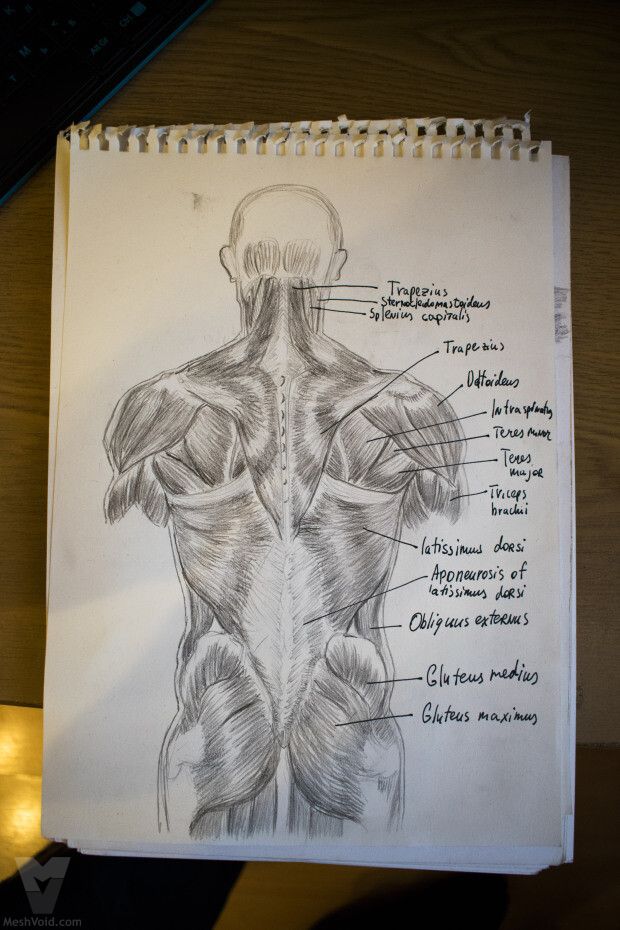 Trapezius
Sternocleidomastoideus
Splenius capitalis
Trapezius
Deltoideus
Intraspinatus
Teres minor
Teres
major
Triceps
brachii
latissimus dorsi
Aponeurosis of
latissimus dorsi
Obliquus externus
Gluteus medius
Gluteus maximus
MeshVoid.com
Alt Gr
Ctrl